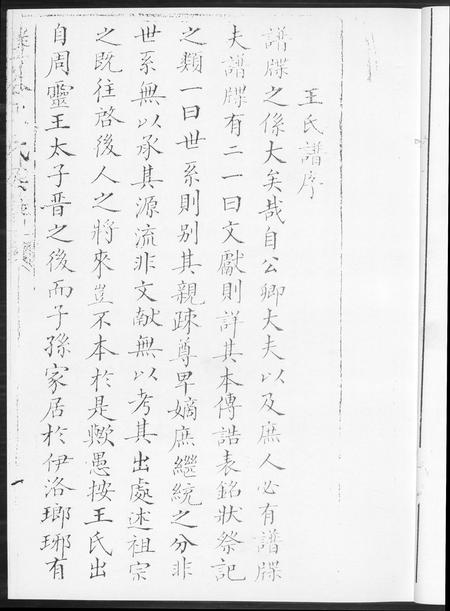 王氏譜序
譜牒之係大矣哉自公卿大夫以及庶人必有譜牒
夫譜牒有二一曰文獻則詳其本傳誥表銘狀祭記
之類一曰世系則别其親疎尊卑嫡庶繼統之分非
世系無以承其源流非文献無以考其出處述祖宗
之既往啓後人之將來豈不本於是歟愚按王氏出
自周靈王太子晋之後而子孫家居於伊洛瑯琊有